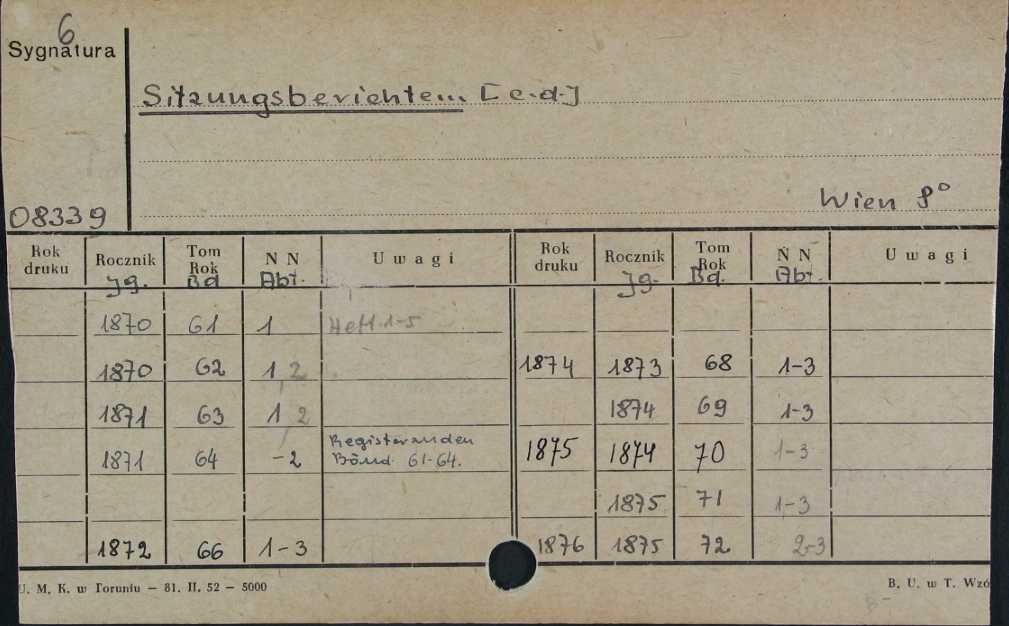 6
Sygnatura
Sitzungsberichte... [c.d.]
Wien 8°
08339
Rok druku Rocznik Jg. Tom Rok Bd N N Abt. Uwagi Rok druku Rocznik Jg. Tom Rok Bd. N N Abt. Uwagi
1870 61 1 Heft 1-5
1870 62 1, 2 1874 1873 68 1-3
1871 63 1 2 1874 69 1-3
1871 64 -2 Register zu den Bänd. 61-64. 1875 1874 70 1-3
1875 71 1-3
1872 66 1-3 1876 1875 72 2-3
U. M. K. w Toruniu — 81. II. 52 — 5000
B. U. w T. Wzó